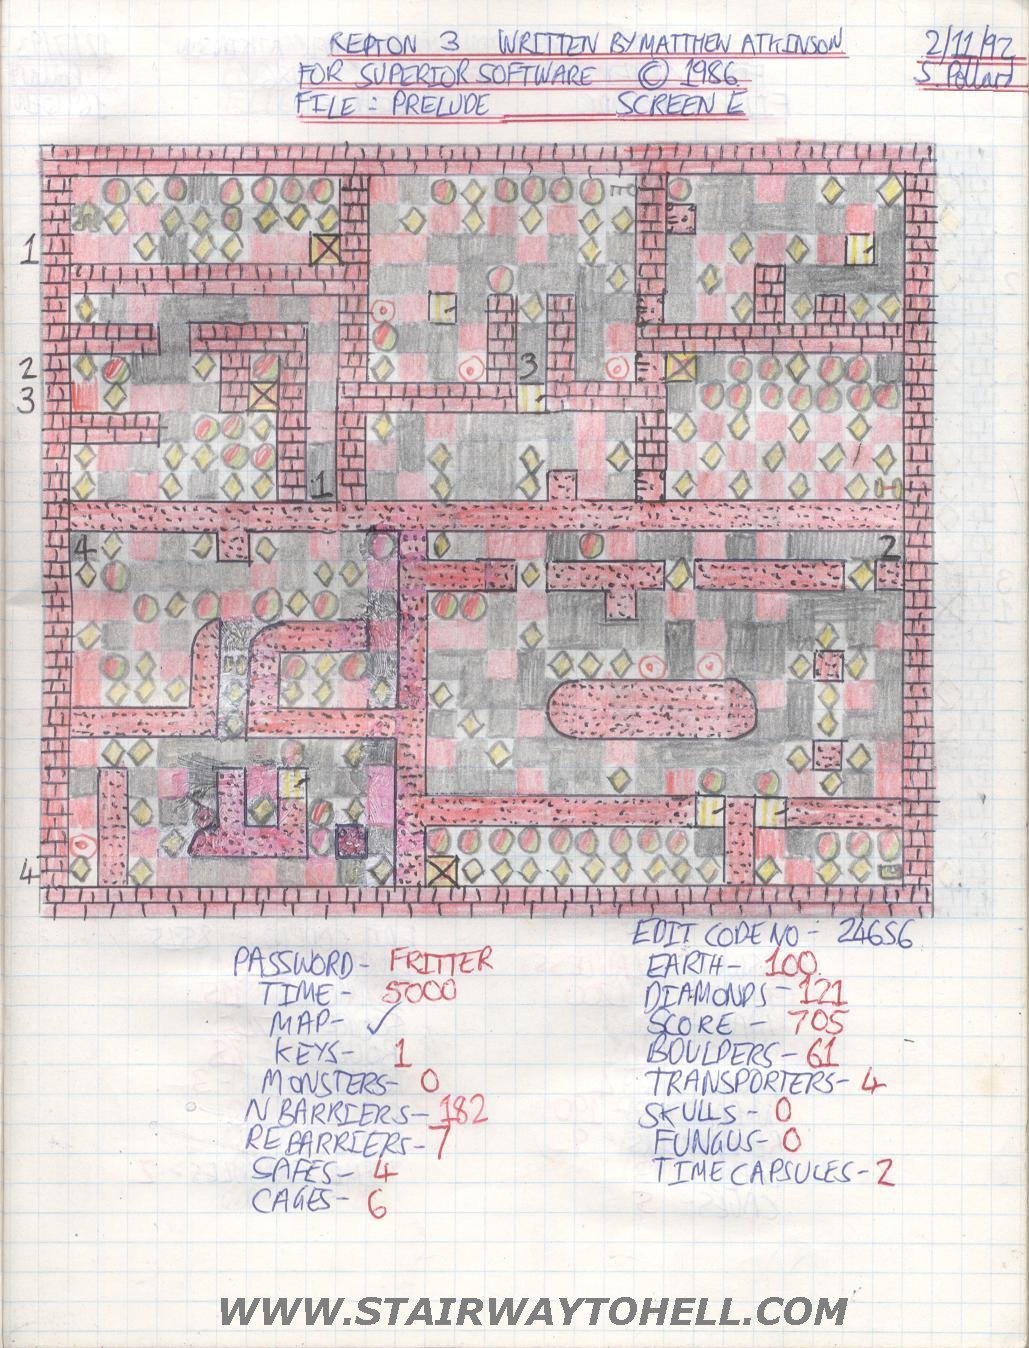 REPTON 3 WRITTEN BY MATTHEW ATKINSON
2/11/92
FOR SUPERIOR SOFTWARE © 1986
S Pollard
FILE : PRELUDE SCREEN E
1
2
3
3
1
4
2
4
EDIT CODE NO - 24656
PASSWORD - FRITTER
EARTH - 100
TIME - 5000
DIAMONDS - 121
MAP - ✓
SCORE - 705
KEYS - 1
BOULDERS - 61
MONSTERS - 0
TRANSPORTERS - 4
N BARRIERS - 182
SKULLS - 0
RE BARRIERS - 7
FUNGUS - 0
SAFES - 4
TIME CAPSULES - 2
CAGES - 6
WWW.STAIRWAYTOHELL.COM